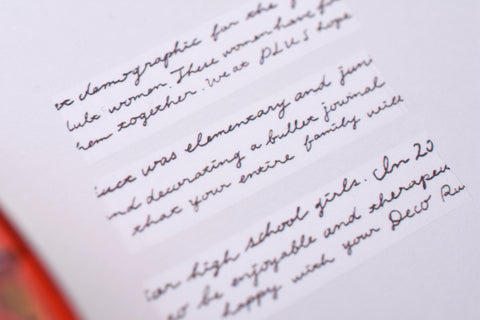 demographic for the
women. These women have
together. We at PLUS hope
was elementary and jun
nd decorating a bullet jowinal
that your entire family will
ior high school girls. In 20
to be enjoyable and therapeu
happy with your Deco Ru